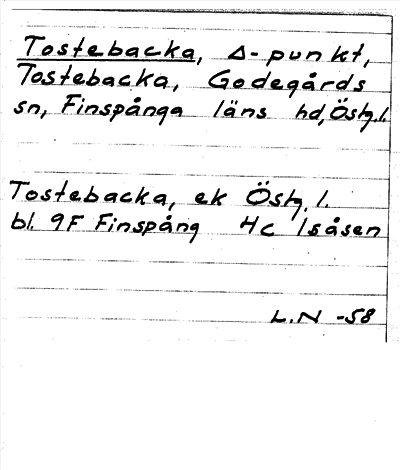 Tostebacka, Δ-punkt,
Tostebacka, Godegårds
sn, Finspånga läns hd, Östg.l.
Tostebacka, ek Östg.l.
bl. 9F Finspång 4c Isåsen
L.N -58